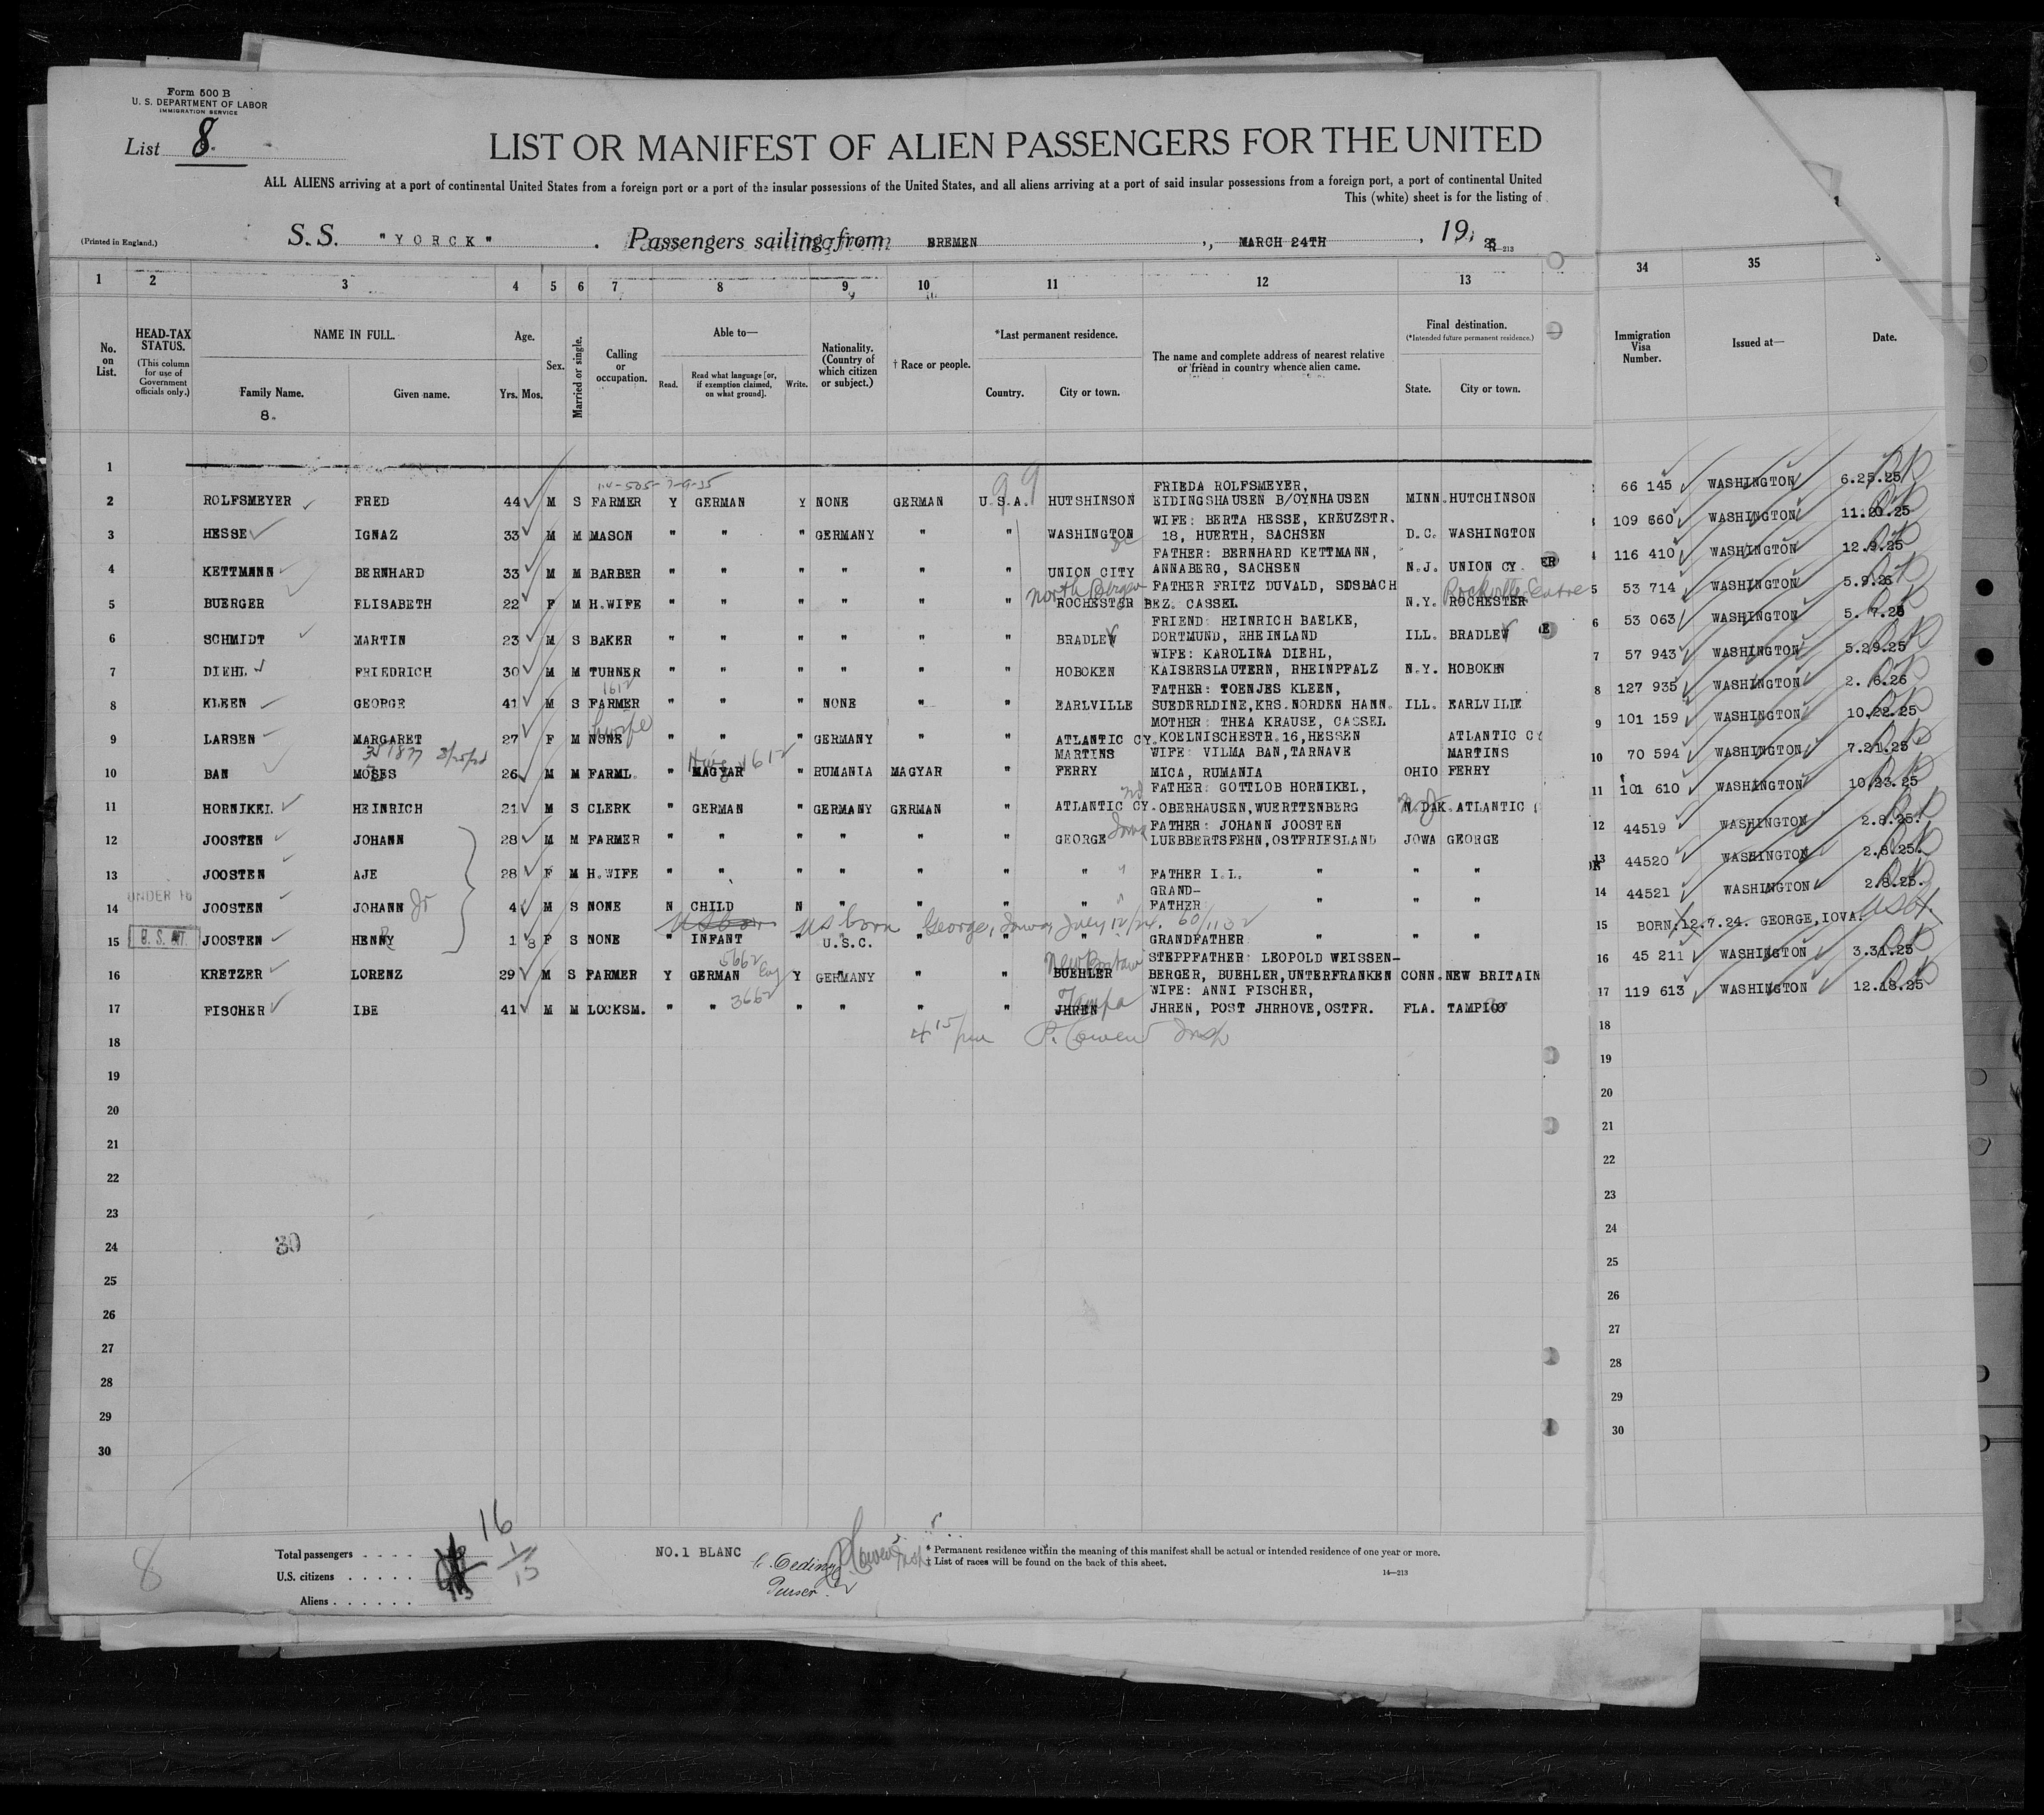 Form 500 B
U. S. DEPARTMENT OF LABOR
IMMIGRATION SERVICE
List 8.
LIST OR MANIFEST OF ALIEN PASSENGERS FOR THE UNITED
ALL ALIENS arriving at a port of continental United States from a foreign port or a port of the insular possessions of the United States, and all aliens arriving at a port of said insular possessions from a foreign port, a port of continental United
This (white) sheet is for the listing of
(Printed in England.) S. S. "YORCK" . Passengers sailing from BREMEN , MARCH 24TH , 19
1 2 3 4 5 6 7 8 9 10 11 12 13 34 35
No. on List.
HEAD-TAX STATUS.
(This column for use of Government officials only.)
NAME IN FULL.
Family Name.
8.
Given name.
Age.
Yrs. Mos.
Sex.
Married or single.
Calling or occupation.
Able to—
Read.
Read what language [or, if exemption claimed, on what ground].
Write.
Nationality. (Country of which citizen or subject.)
† Race or people.
*Last permanent residence.
Country. City or town.
The name and complete address of nearest relative or friend in country whence alien came.
Final destination.
(*Intended future permanent residence.)
State. City or town.
Immigration Visa Number.
Issued at—
Date.
1
2 ROLFSMEYER FRED 44 M S FARMER Y GERMAN Y NONE GERMAN U.S.A. HUTSHINSON FRIEDA ROLFSMEYER, EIDINGSHAUSEN B/OYNHAUSEN MINN. HUTCHINSON 66 145 WASHINGTON 6.25.25
3 HESSE IGNAZ 33 M M MASON " " " GERMANY " " WASHINGTON WIFE: BERTA HESSE, KREUZSTR. 18, HUERTH, SACHSEN D.C. WASHINGTON 109 660 WASHINGTON
4 KETTMANN BERNHARD 33 M M BARBER " " " " " " UNION CITY North Bergen FATHER: BERNHARD KETTMANN, ANNABERG, SACHSEN N.J. UNION CY 116 410 WASHINGTON 12.9.25
5 BUERGER ELISABETH 22 F M H.WIFE " " " " " " ROCHESTER FATHER FRITZ DUVALD, SDSBACH BEZ. CASSEL N.Y. ROCHESTER Rockville Centre 53 714 WASHINGTON
6 SCHMIDT MARTIN 23 M S BAKER " " " " " " BRADLEW FRIEND: HEINRICH BAELKE, DORTMUND, RHEINLAND ILL. BRADLEW 53 063 WASHINGTON
7 DIEHL FRIEDRICH 30 M M TURNER " " " " " " HOBOKEN WIFE: KAROLINA DIEHL, KAISERSLAUTERN, RHEINPFALZ N.Y. HOBOKEN 57 943 WASHINGTON 5.29.25
8 KLEEN GEORGE 41 M S FARMER " " " NONE " " EARLVILLE FATHER: TOENJES KLEEN, SUEDERLDINE,KRS.NORDEN HANN. ILL. EARLVILIE 127 935 WASHINGTON 2. 6.26
9 LARSEN MARGARET 27 F M NONE " " " GERMANY " " ATLANTIC CY. MOTHER: THEA KRAUSE, CASSEL KOELNISCHESTR.16,HESSEN ATLANTIC CY 101 159 WASHINGTON 10.22.25
10 BAN MOSES 26 M M FARML. " MAGYAR " RUMANIA MAGYAR " MARTINS FERRY WIFE: VILMA BAN,TARNAVE MICA, RUMANIA OHIO MARTINS FERRY 70 594 WASHINGTON 7.21.25
11 HORNIKEL HEINRICH 21 M S CLERK " GERMAN " GERMANY GERMAN " ATLANTIC CY. FATHER: GOTTLOB HORNIKEL, OBERHAUSEN,WUERTTENBERG N.DAK. ATLANTIC 101 610 WASHINGTON 10.23.25
12 JOOSTEN JOHANN 28 M M FARMER " " " " " " GEORGE Iowa FATHER: JOHANN JOOSTEN LUEBBERTSFEHN,OSTFRIESLAND JOWA GEORGE 44519 WASHINGTON 2.8.25.
13 JOOSTEN AJE 28 F M H.WIFE " " " " " " " FATHER I.L. " " " 44520 WASHINGTON 2.8.25.
UNDER 16
14 JOOSTEN JOHANN Jr 4 M S NONE N CHILD N " " " " GRAND-FATHER " " " 44521 WASHINGTON 2.8.25.
US born George, Iowa, July 12/24. 60/1132
15 JOOSTEN HENNY 1 8 F S NONE " INFANT " U.S.C. " " " GRANDFATHER " " " BORN:12.7.24. GEORGE,IOVA.
16 KRETZER LORENZ 29 M S FARMER Y GERMAN Eng Y GERMANY " " BUEHLER New Britain STEPPFATHER: LEOPOLD WEISSEN-BERGER, BUEHLER,UNTERFRANKEN CONN. NEW BRITAIN 45 211 WASHINGTON 3.31.25
17 FISCHER IBE 41 M M LOCKSM. " " " " " " JHREN Tampa WIFE: ANNI FISCHER, JHREN, POST JHRHOVE,OSTFR. FLA. TAMPICO 119 613 WASHINGTON 12.18.25
18 4 15/pm P. Cowen Insp
19
20
21
22
23
24 30
25
26
27
28
29
30
Total passengers . . . . 16
U.S. citizens . . . . . 1
Aliens . . . . . . 15
8
NO.1 BLANC
Purser
* Permanent residence within the meaning of this manifest shall be actual or intended residence of one year or more.
† List of races will be found on the back of this sheet.
14—213